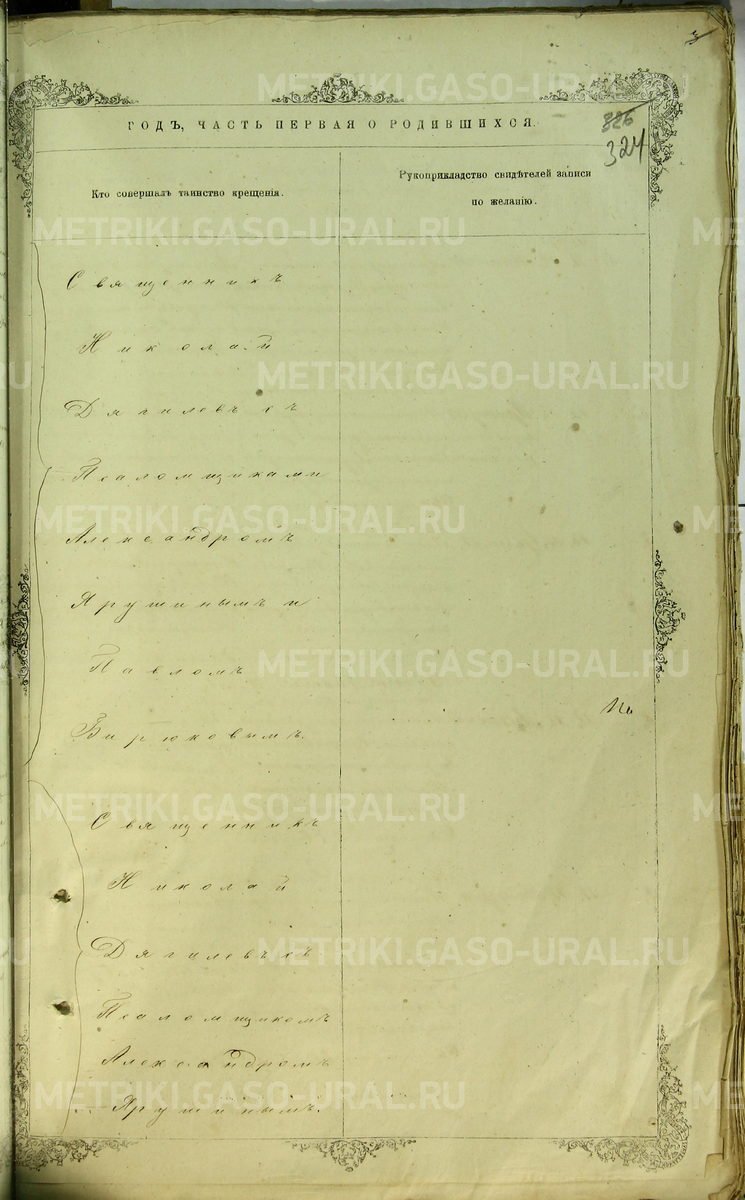 ГОДЪ, ЧАСТЬ ПЕРВАЯ О РОДИВШИХСЯ.
826
324
Кто совершалъ таинство крещенія.
Рукоприкладство свидѣтелей записи
по желанію.
Священникъ
Николай
Дягилевъ съ
Псаломщиками
Александромъ
Ярушинымъ и
Павломъ
Бирюковымъ.
Священникъ
Николай
Дягилевъ съ
Псаломщикомъ
Александромъ
Ярушинымъ.
METRIKI.GASO-URAL.RU